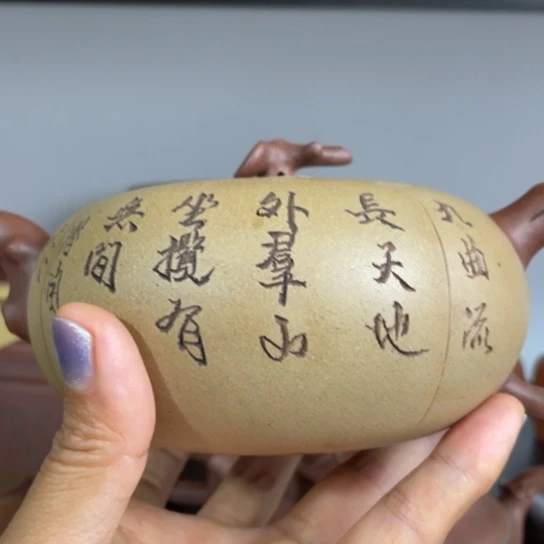 九曲流
長天地
外羣山
坐攬有
無間